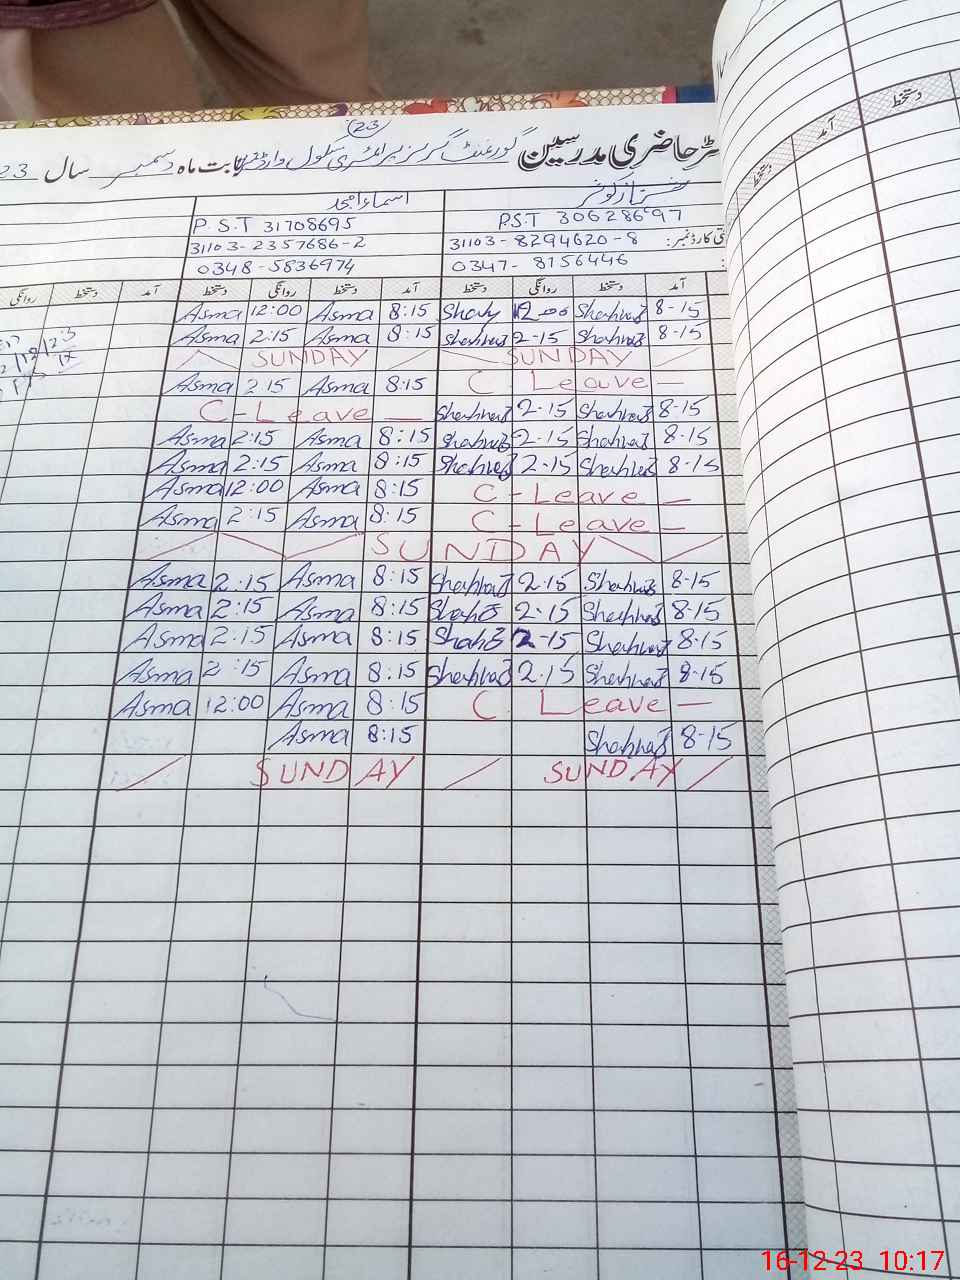 23
حاضری مدرسین گورنمنٹ گرلز پرائمری سکول بابت ماہ دسمبر سال 23
شہناز کوثر اسماء امجد
P.S.T 31708695 P.S.T 30628697
31103-2357686-2 31103-8294620-8
0348-5836974 0347-8156446
آمد دستخط روانگی دستخط آمد دستخط روانگی دستخط آمد دستخط روانگی
Asma 12:00 Asma 8:15 Shah 12-00 Shahnaz 8-15
Asma 2:15 Asma 8:15 Shahnaz 2-15 Shahnaz 8-15
SUNDAY SUNDAY
Asma 2 15 Asma 8:15 C Leave -
C - Leave - Shahnaz 2-15 Shahnaz 8-15
Asma 2:15 Asma 8:15 Shahnaz 2-15 Shahnaz 8-15
Asma 2:15 Asma 8:15 Shahnaz 2-15 Shahnaz 8-15
Asma 12:00 Asma 8:15 C - Leave -
Asma 2:15 Asma 8:15 C - Leave -
SUNDAY
Asma 2:15 Asma 8:15 Shahnaz 2-15 Shahnaz 8-15
Asma 2:15 Asma 8:15 Shahz 2-15 Shahnaz 8-15
Asma 2:15 Asma 8:15 Shahz 2-15 Shahnaz 8-15
Asma 2:15 Asma 8:15 Shahnaz 2.15 Shahnaz 8-15
Asma 12:00 Asma 8:15 C Leave -
Asma 8:15 Shahnaz 8-15
SUNDAY SUNDAY
دستخط آمد دستخط
16-12-23 10:17